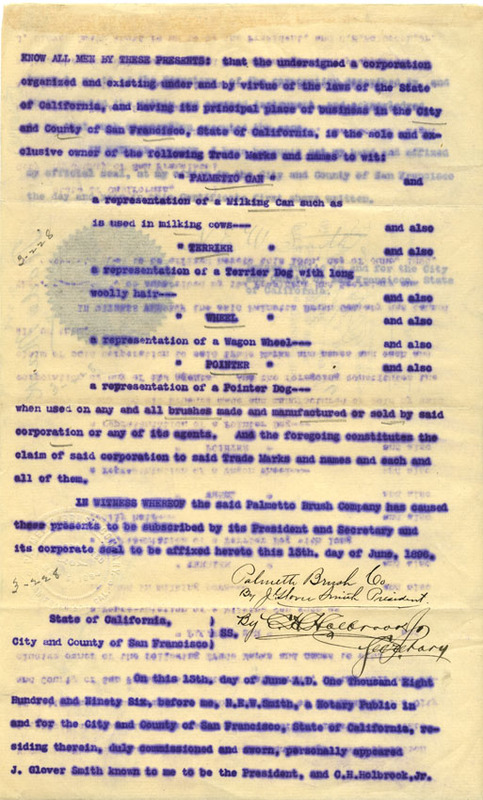 KNOW ALL MEN BY THESE PRESENTS: that the undersigned a corporation
organized and existing under and by virtue of the laws of the State
of California, and having its principal place of business in the City
and County of San Francisco, State of California, is the sole and ex-
clusive owner of the following Trade Marks and names to wit:
" PALMETTO CAN " and
a representation of a Milking Can such as
is used in milking cows--- and also
3-228
" TERRIER " and also
a representation of a Terrier Dog with long
woolly hair--- and also
" WHEEL " and also
a representation of a Wagon Wheel--- and also
" POINTER " and also
a representation of a Pointer Dog---
when used on any and all brushes made and manufactured or sold by said
corporation or any of its agents. And the foregoing constitutes the
claim of said corporation to said Trade Marks and names and each and
all of them.
IN WITNESS WHEREOF the said Palmetto Brush Company has caused
these presents to be subscribed by its President and Secretary and
its corporate seal to be affixed hereto this 15th. day of June, 1896.
3-228
Palmetto Brush Co
By J. Glover Smith President
By C H Holbrook Jr
Secretary
State of California, )
) SS.
City and County of San Francisco)
On this 15th. day of June A.D. One Thousand Eight
Hundred and Ninety Six, before me, N.E.W.Smith, a Notary Public in
and for the City and County of San Francisco, State of California, re-
siding therein, duly commissioned and sworn, personally appeared
J. Glover Smith known to me to be the President, and C.H.Holbrook,Jr.